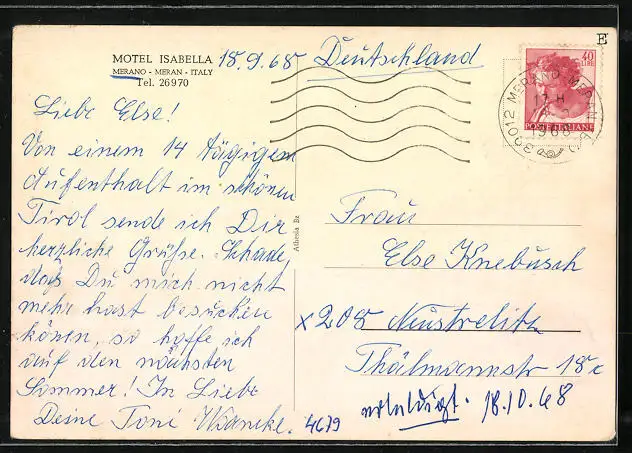 MOTEL ISABELLA
MERANO - MERAN - ITALY
Tel. 26970
18.9.68
Deutschland
Liebe Else!
Von einem 14 tägigen
Aufenthalt im schönen
Tirol sende ich Dir
herzliche Grüße. Schade,
daß Du mich nicht
mehr hast besuchen
können, so hoffe ich
auf den nächsten
Sommer! In Liebe
Deine Toni
4679
Athesia Bz
E
40
LIRE
POSTE ITALIANE
39012 MERANO-MERAN
17 H
1968
Frau
Else Knebusch
x 208 Neustrelitz
Thälmannstr 18c
erledigt. 18.10.68